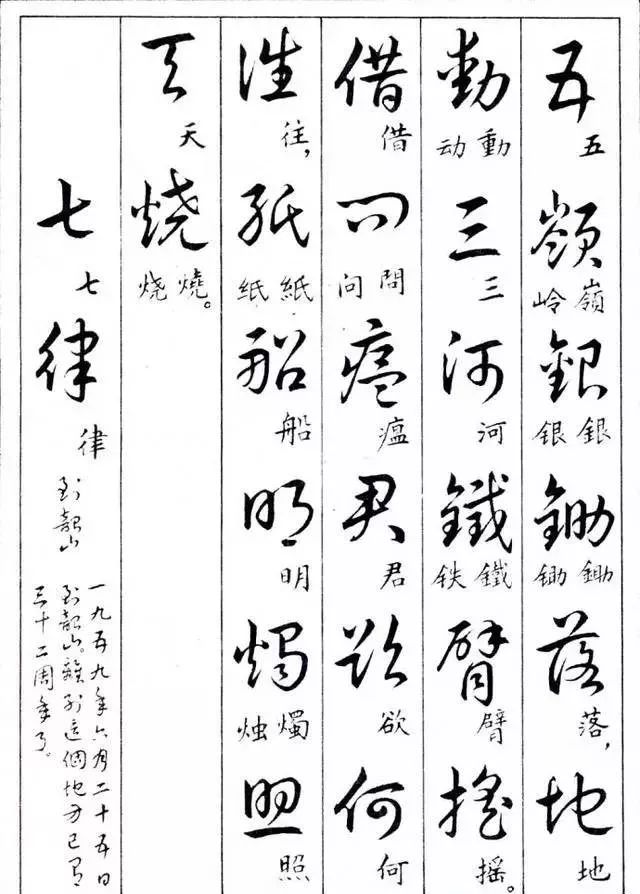 五嶺銀鋤落地
五 嶺岭 銀银 鋤锄 落， 地
動三河鐵臂搖
動动 三 河 鐵铁 臂 摇。
借問瘟君欲何
借 問问 瘟 君 欲 何
往紙船明燭照
往， 紙纸 船 明 燭烛 照
天燒
天 燒烧。
七律
七 律
到韶山
一九五九年六月二十五日
到韶山。離別這個地方已有
三十二周年了。